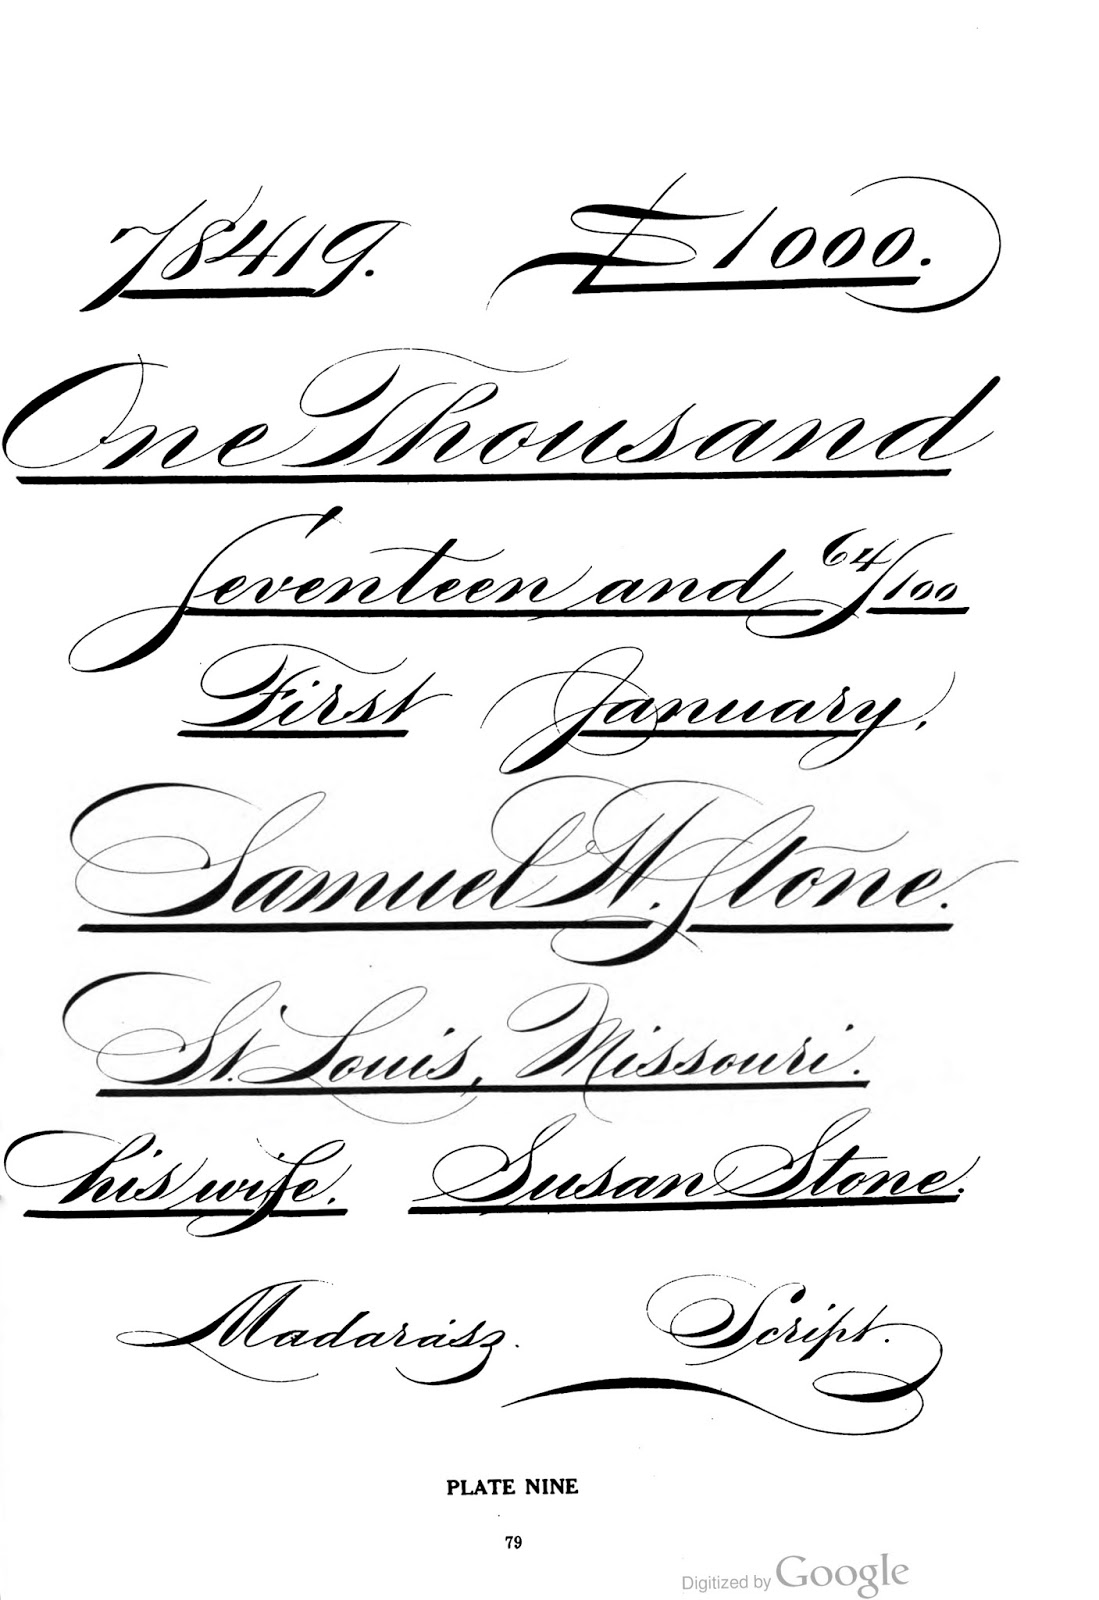 78419. £1000.
One Thousand
Seventeen and 64/100
First January,
Samuel H. Stone.
St. Louis, Missouri.
his wife. Susan Stone.
Madarász. Script.
PLATE NINE
79
Digitized by Google